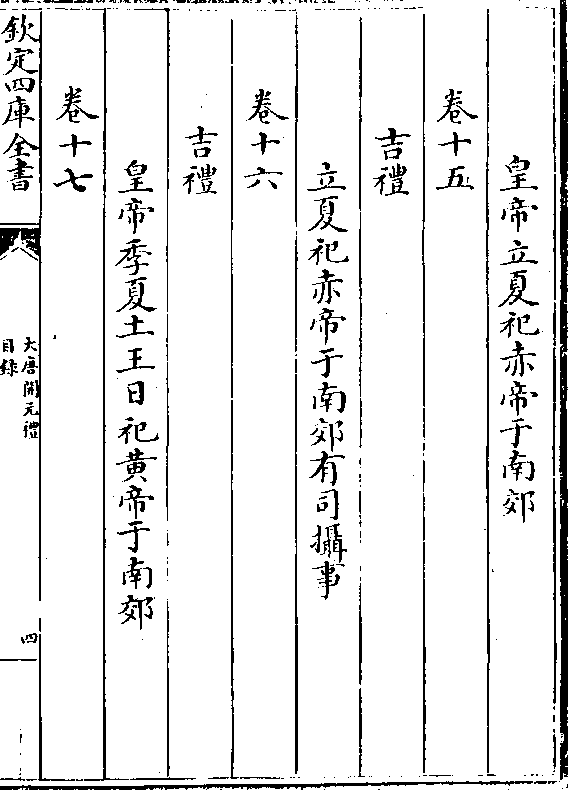 皇帝立夏祀赤帝于南郊
卷十五
吉禮
立夏祀赤帝于南郊有司攝事
卷十六
吉禮
皇帝季夏土王日祀黃帝于南郊
卷十七
欽定四庫全書
大唐開元禮
目錄
四